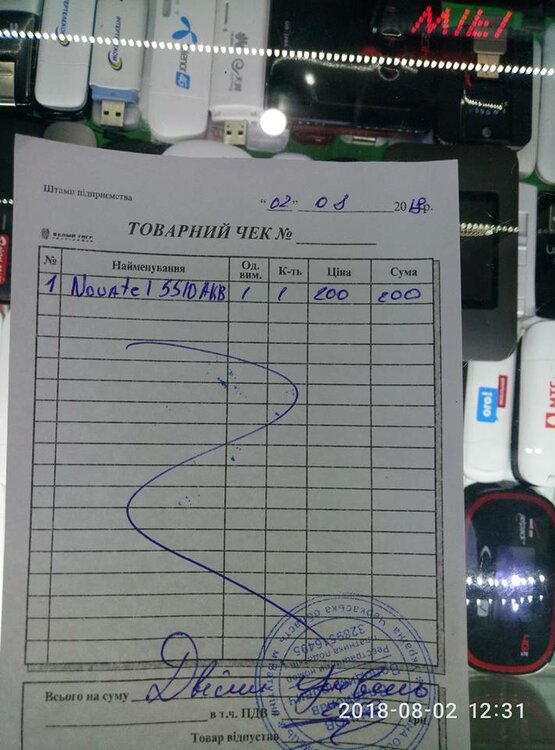 MIEI
Штамп підприємства
"02" 08 2018р.
ТОВАРНИЙ ЧЕК №
№ Найменування Од. вим. К-ть Ціна Сума
1 Novatel 5510 АКВ 1 1 200 200
Всього на суму Двісті гривень
в т.ч. ПДВ грн.
Товар відпустив
Україна Черкаська область
3289516495
2018-08-02 12:31
ого!
МТС
4G